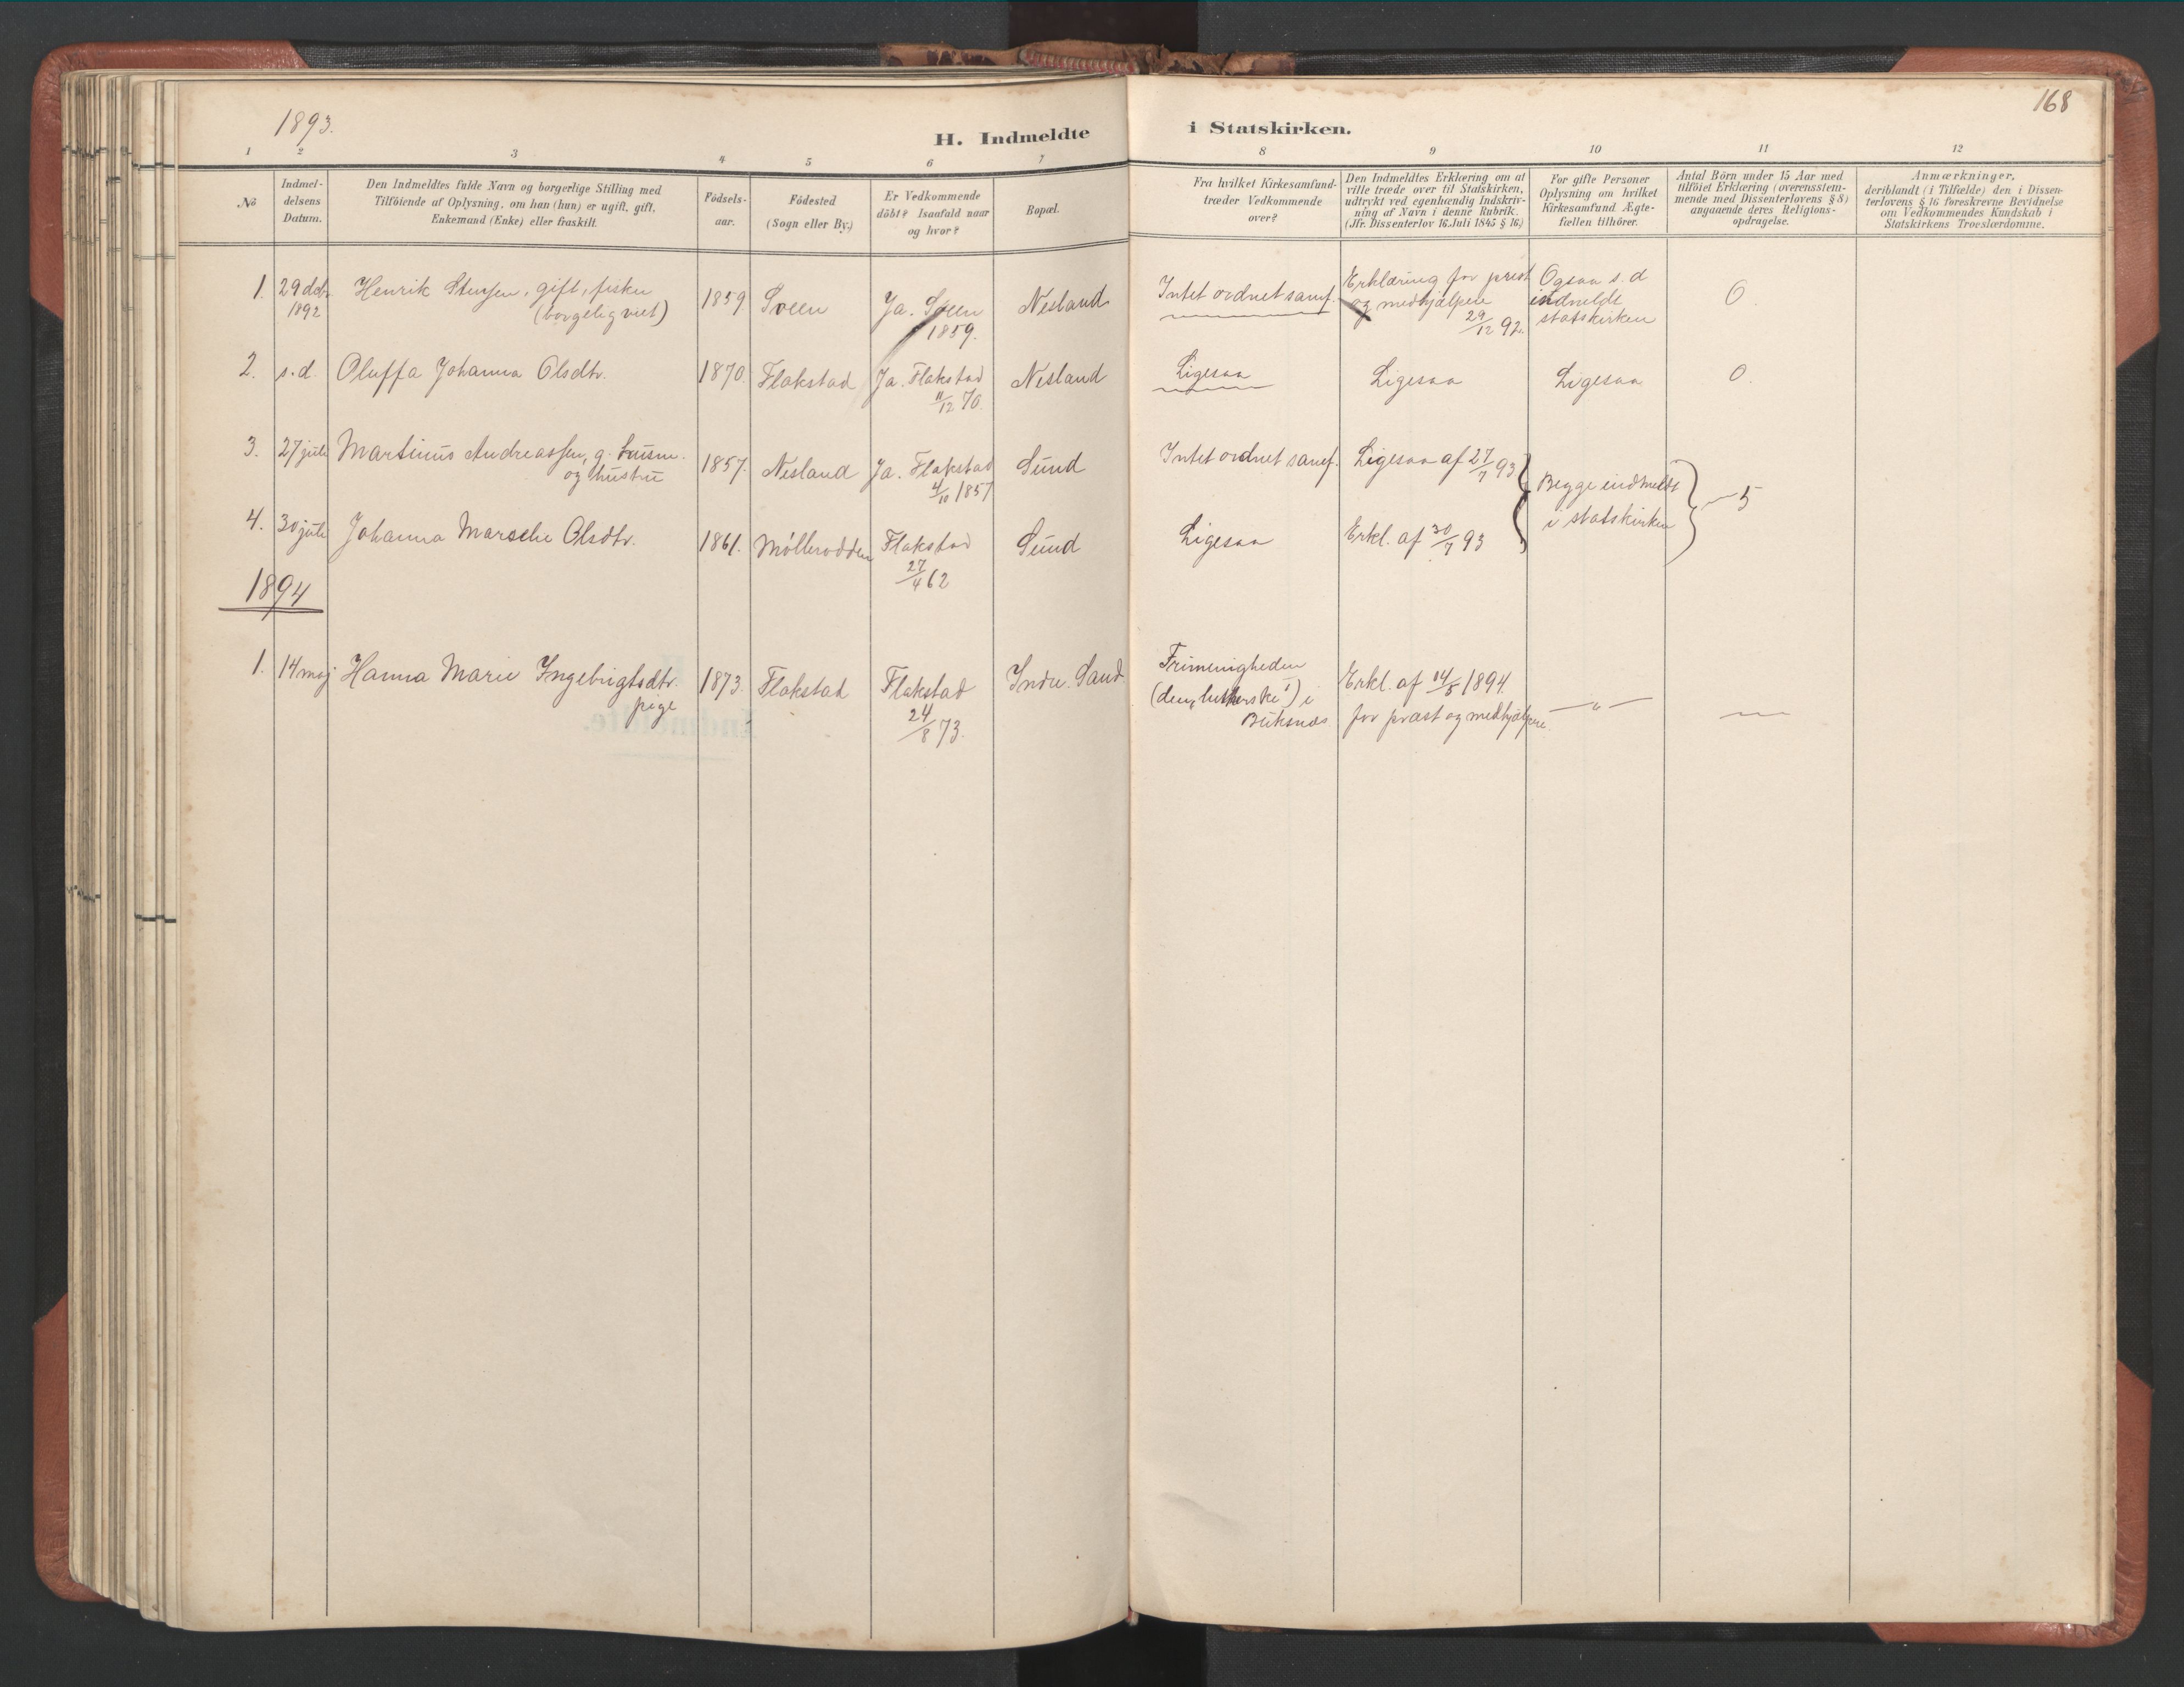 1893.
168
H. Indmeldte i Statskirken.
1 2 3 4 5 6 7 8 9 10 11 12
No
Indmel-
delsens
Datum.
Den Indmeldtes fulde Navn og borgerlige Stilling med
Tilföiende af Oplysning, om han (hun) er ugift, gift,
Enkemand (Enke) eller fraskilt.
Födsels-
aar.
Födested
(Sogn eller By.)
Er Vedkommende
döbt? Isaafald naar
og hvor?
Bopæl.
Fra hvilket Kirkesamfund
træder Vedkommende
over?
Den Indmeldtes Erklæring om at
ville træde over til Statskirken,
udtrykt ved egenhændig Indskriv-
ning af Navn i denne Rubrik.
(Jfr. Dissenterlov 16 Juli 1845 § 16.)
For gifte Personer
Oplysning om hvilket
Kirkesamfund Ægte-
fællen tilhörer.
Antal Börn under 15 Aar med
tilföiet Erklæring (overensstem-
mende med Dissenterlovens § 8)
angaaende deres Religions-
opdragelse.
Anmærkninger,
deriblandt (i Tilfælde) den i Dissen-
terlovens § 16 foreskrevne Bevidnelse
om Vedkommendes Kundskab i
Statskirkens Troeslærdomme.
1.
29 dcbr
1892
Henrik gift, fisker
(borgelig viet)
1859
Sveen
Ja. Sveen
1859.
Nesland
Intet ordnet samf.
Erklæring for prest
og medhjælpere
29/12 92.
Ogsaa s. d
indmeldt
statskirken
0.
2.
s. d.
Oluffa Johanna Olsdtr.
1870.
Flakstad
Ja. Flakstad
11/12 70.
Nesland
Ligesaa
Ligesaa
Ligesaa
0.
3.
27 juli
Martinus Andreassen, g. husm.
og hustru
1857.
Nesland
Ja. Flakstad
4/10 1857
Sund
Intet ordnet samf.
Ligesaa af 27/7 93
Begge indmeldt
i statskirken
5
4.
30 juli
Johanna Olsdtr.
1861.
Møllerodden
Flakstad
27/4 62
Sund
Ligesaa
Erkl. af 30/7 93
1894
1.
14 maj
Hanna Marie Ingebrigtsdtr.
pige
1873.
Flakstad
Flakstad
24/8 73.
Indre. Sand
Frimenigheden
(den lutherske) i
Buksnæs
Erkl. af 14/5 1894
for præst og medhjælpere
— " —
—